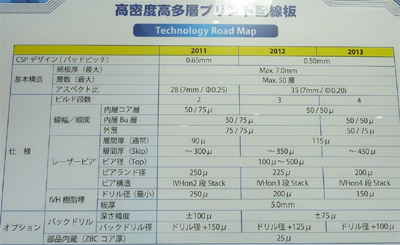 高密度高多層プリント配線板
Technology Road Map
2011 2012 2013
CSP デザイン (パッドピッチ) 0.65mm 0.50mm
基本構造 総板厚 (最大) Max. 7.0mm
層数 (最大) Max. 50 層
アスペクト比 28 (7mm / Φ0.25) 35 (7mm / Φ0.20)
ビルド段数 2 3 4
仕様 線幅/線間 内層コア層 50 / 75μ 50 / 50μ
内層 Bu層 50 / 75μ 50 / 50μ
外層 75 / 75μ 50 / 75μ
レーザービア 層間厚 (通常) 90μ 115μ
層間厚 (Skip) ～300μ ～350μ ～450μ
ビア径 (Top) 100μ～500μ
ビアランド径 250μ 225μ 200μ
ビア構造 IVHon2 段 Stack IVHon3 段 Stack IVHon4 段 Stack
IVH 樹脂埋 ドリル径 (最小) 250μ 200μ 150μ
板厚 5.0mm
オプション バックドリル 深さ精度 ±100μ ±75μ
バックドリル径 ドリル径 +150μ ドリル径 +125μ ドリル径 +100μ
部品内蔵 (ZBC コア厚) 25μ